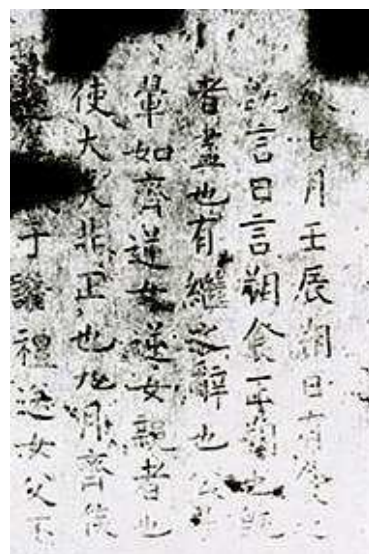 七月壬辰朔日有食之
既言日言朔食正朔也既
者盡也有繼之辭也公子
翬如齊逆女逆女親者也
使大夫非正也九月齊侯
送于讙禮送女父不